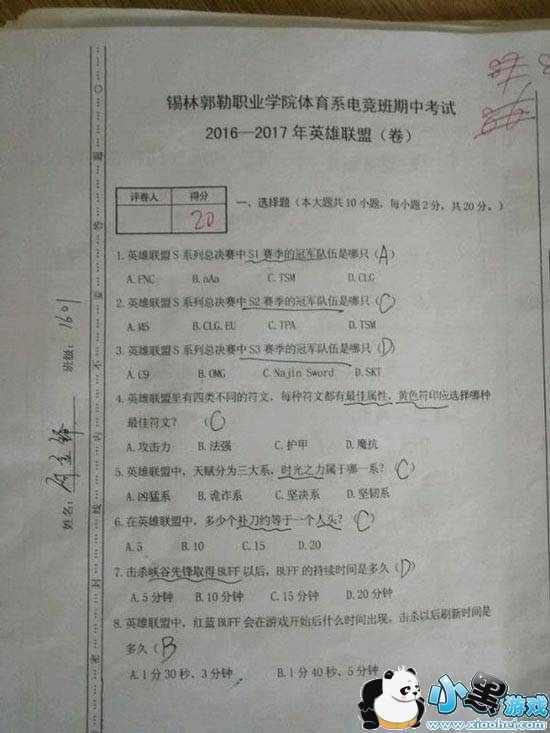 锡林郭勒职业学院体育系电竞班期中考试
2016—2017年英雄联盟（卷）
评卷人 得分
20
一、选择题（本大题共10小题，每小题2分，共20分。）
1.英雄联盟S系列总决赛中S1赛季的冠军队伍是哪只（A）
A.FNC B.aAa C.TSM D.CLG
2.英雄联盟S系列总决赛中S2赛季的冠军队伍是哪只（C）
A.M5 B.CLG.EU C.TPA D.TSM
3.英雄联盟S系列总决赛中S3赛季的冠军队伍是哪只（D）
A.C9 B.OMG C.Najin Sword D.SKT
4.英雄联盟里有四类不同的符文，每种符文都有最佳属性，黄色符印应选择哪种
最佳符文？（C）
A.攻击力 B.法强 C.护甲 D.魔抗
5.英雄联盟中，天赋分为三大系，时光之力属于哪一系？（C）
A.凶猛系 B.诡诈系 C.坚决系 D.坚韧系
6.在英雄联盟中，多少个补刀约等于一个人头？（C）
A.5 B.10 C.15 D.20
7.击杀峡谷先锋取得BUFF以后，BUFF的持续时间是多久（D）
A.5分钟 B.10分钟 C.15分钟 D.20分钟
8.英雄联盟中，红蓝BUFF会在游戏开始后什么时间出现，击杀以后刷新时间是
多久（B）
A.1分30秒、3分钟 B.1分40秒、5分钟
班级：1601
姓名：
密 封 线 内 不 要 答 题
小黑游戏
www.xiaohei.com